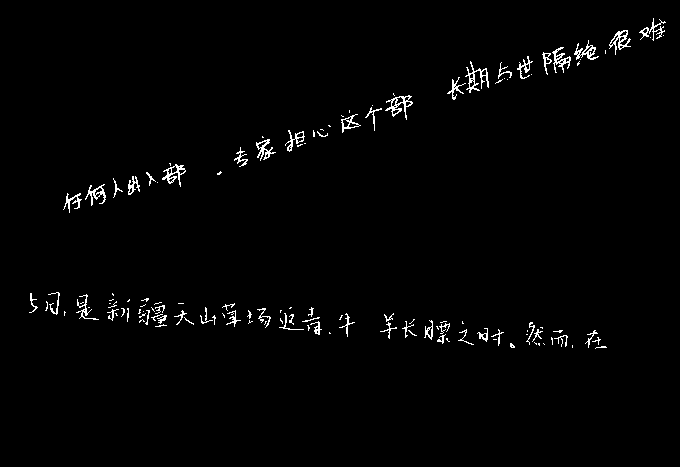 任何人出入部 .专家担心这个部 长期与世隔绝,很难
5月,是新疆天山草场返青,牛 羊长膘之时。然而,在